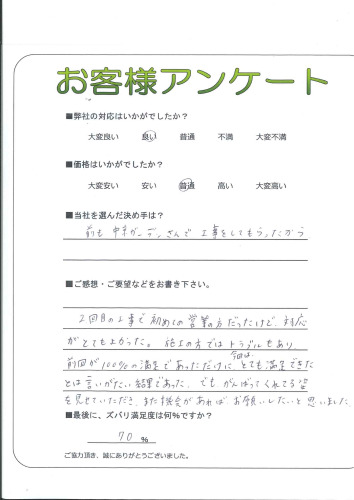 お客様アンケート
■弊社の対応はいかがでしたか?
大変良い 良い 普通 不満 大変不満
■価格はいかがでしたか?
大変安い 安い 普通 高い 大変高い
■当社を選んだ決め手は?
前も ガーデンさんで 工事をしてもらったから
■ご感想・ご要望などをお書き下さい。
2回目の工事で初めての営業の方だったけど、対応
がとてもよかった。施工の方ではトラブルもあり
前回が100%の満足であっただけに、今回は、とても満足できた
とは言いがたい結果であった。でもがんばってくれてる姿
を見せていただき、また機会があればお願いしたいと思いました。
■最後に、ズバリ満足度は何%ですか?
70 %
ご協力頂き、誠にありがとうございました。